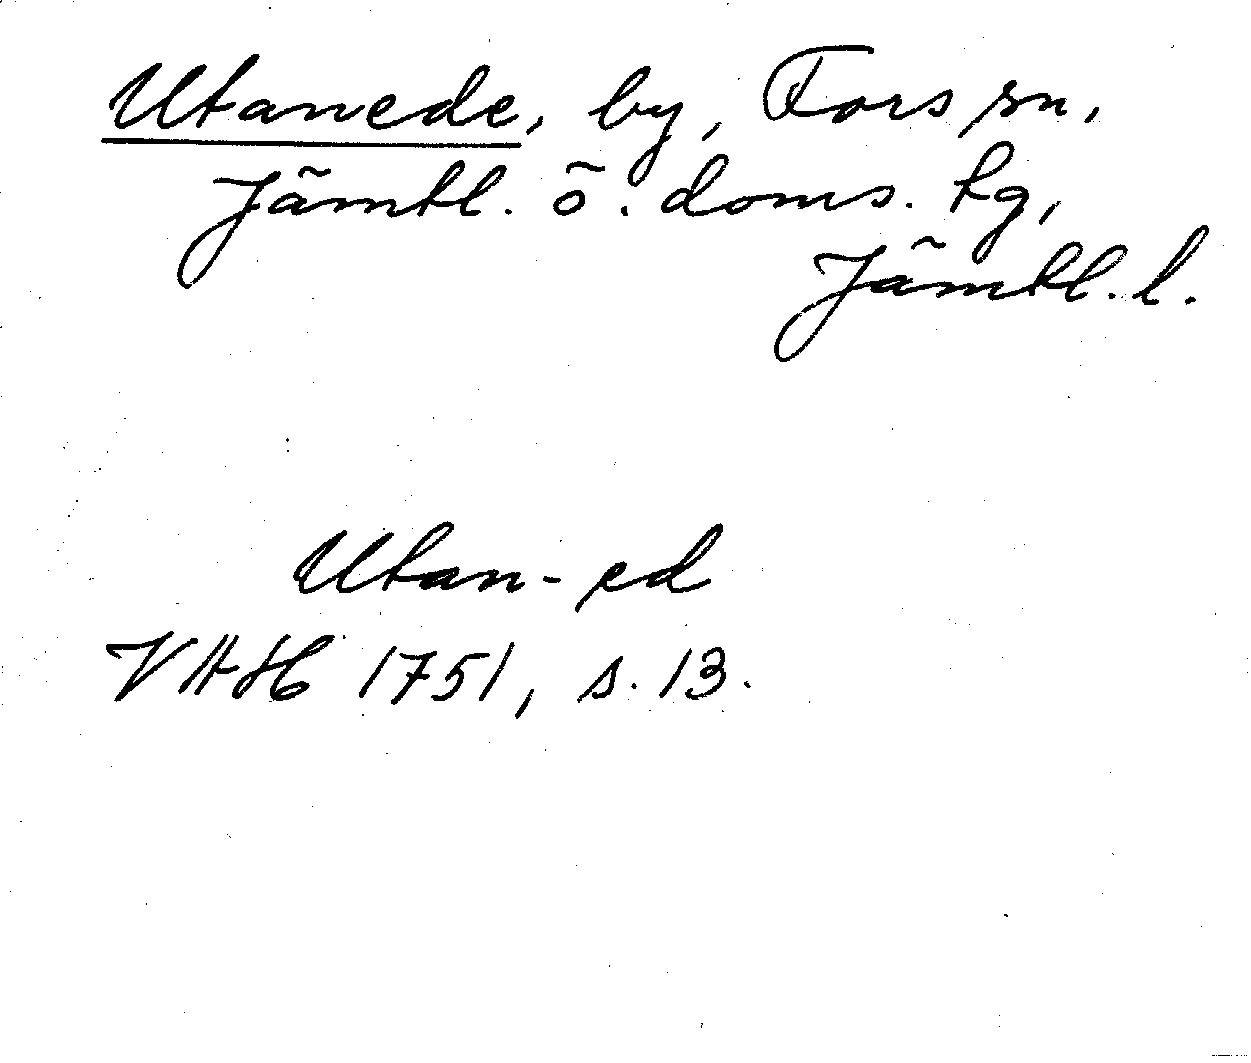 Utanede, by, Fors sn,
Jämtl. ö. doms. tg,
Jämtl. l.
Utan-ed
VAH 1751, s. 13.